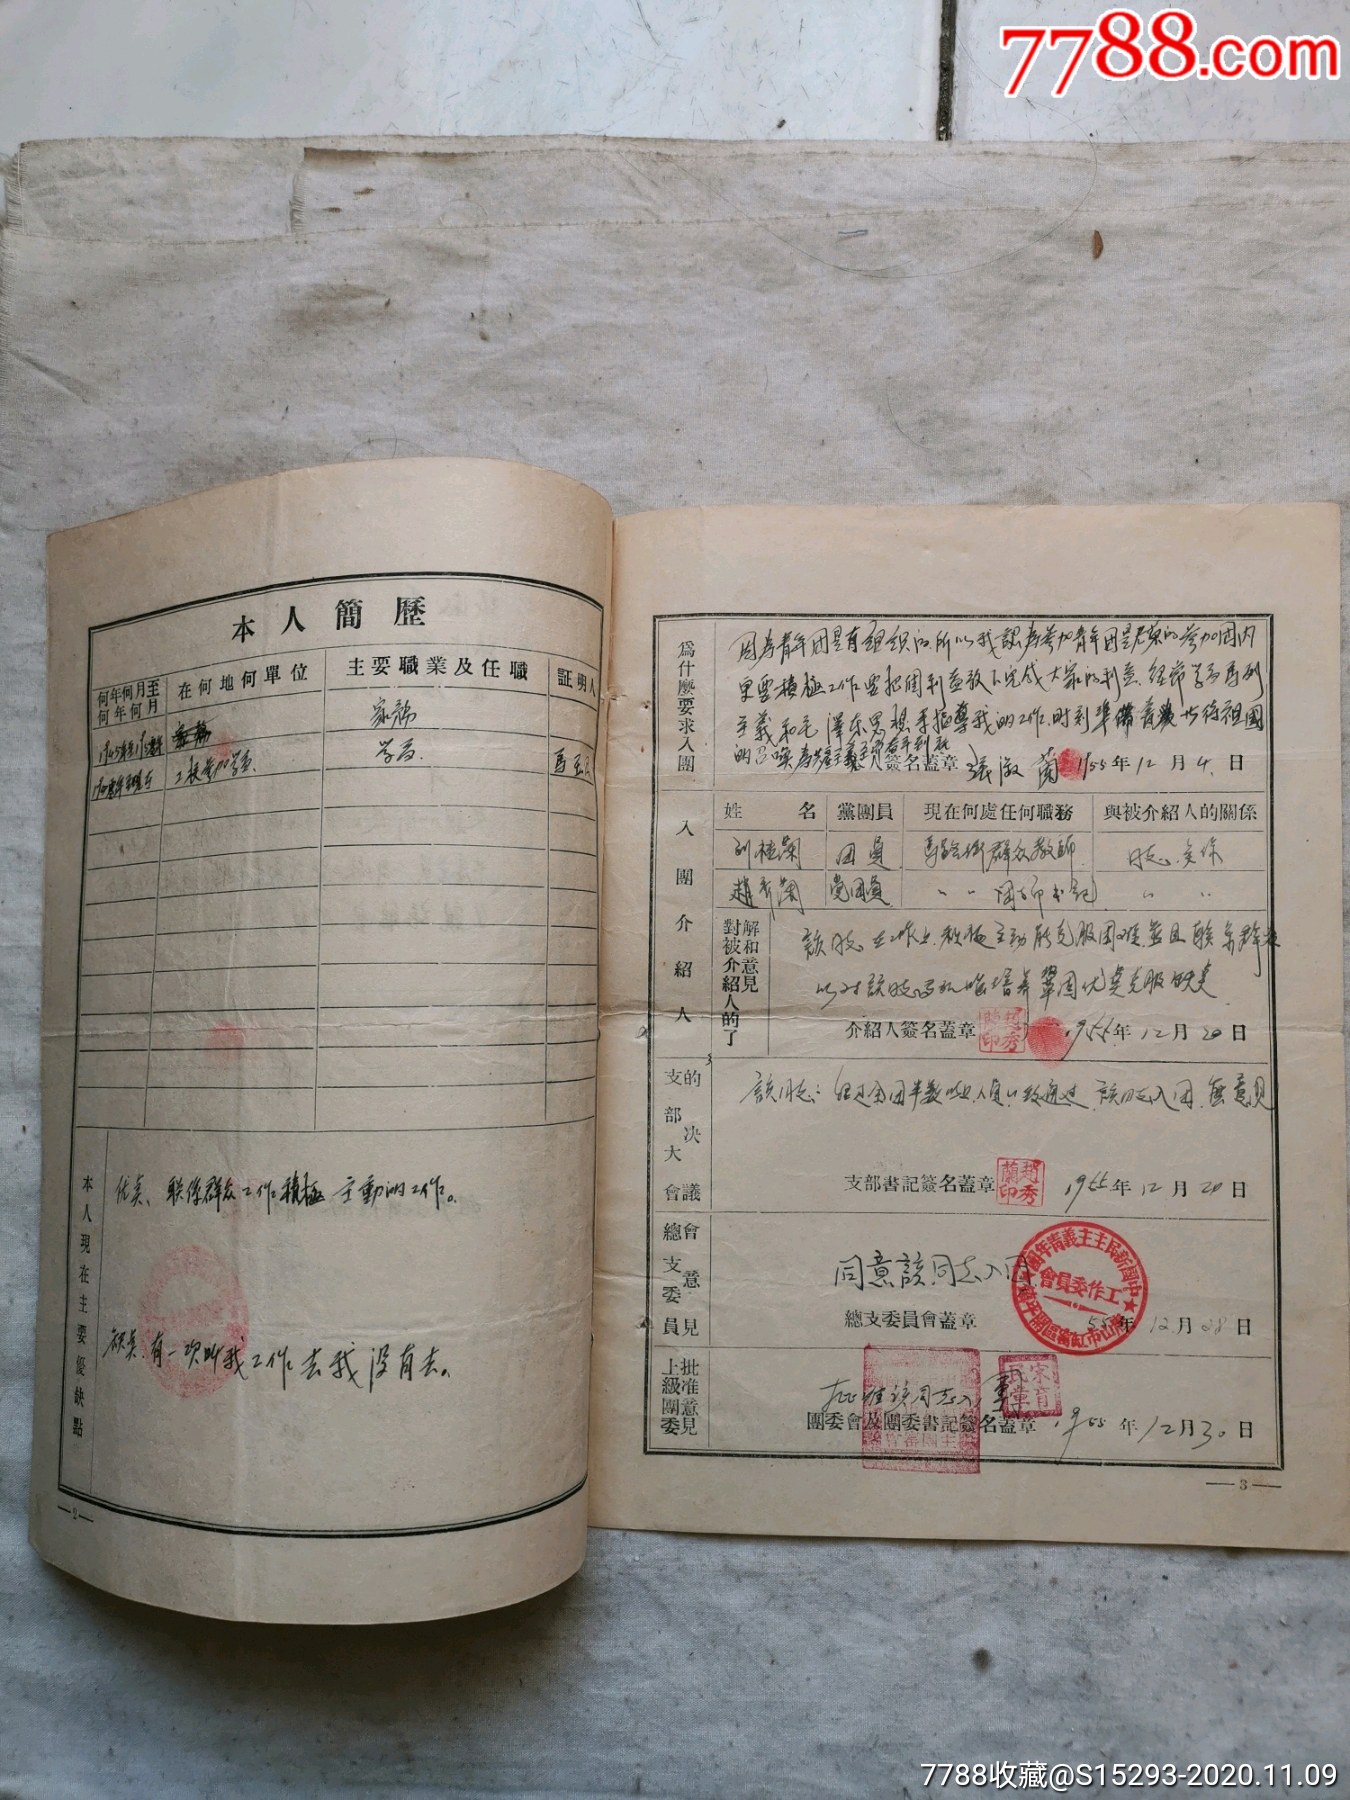 7788.com
本人簡歷
何年何月至何年何月 在何地何單位 主要職業及任職 証明人
家務
学員
本人現在主要優缺點
优点、联係群众工作積極主動的工作。
缺点:有一次叫我工作去我没有去。
—2—
為什麼要求入團
因為青年团是有組織的所以我認為参加青年团是光荣的参加团内
更要積極工作要把團利益放
完成大家的利益 經常学習馬列
主義和毛澤东思想来指導我的工作.時刻準備着 祖國
的召唤
簽名蓋章 張淑蘭 1955年12月4日
入團介紹人
姓名 黨團員 現在何處任何職務 與被介紹人的關係
团員 群众教師 同志关係
趙秀蘭 党团員 〃 〃 团支部书記 〃 〃
對被介紹人的了解和意見
該同志在工作上.积極主動能克服困难.並且联系群众
鞏固优点克服缺点
介紹人簽名蓋章 趙秀蘭印 1955年12月20日
支部大會的决議
該同志:經过全团半数以上人員一致通过 該同志入团.無意見
支部書記簽名蓋章 趙秀蘭印 1955年12月20日
總支委員會意見
同意該同志入团
中國新民主主義青年團 工作委員會
總支委員會蓋章 55年12月28日
上級團委批准意見
批准該同志入團
宋育民章
團委會及團委書記簽名蓋章 1955年12月30日
—3—
7788收藏@S15293-2020.11.09